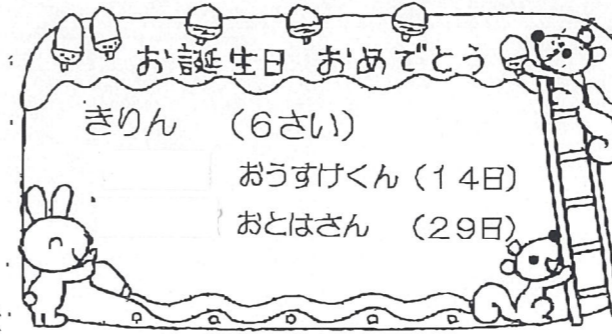 お誕生日 おめでとう
きりん （6さい）
おうすけくん（14日）
おとはさん （29日）